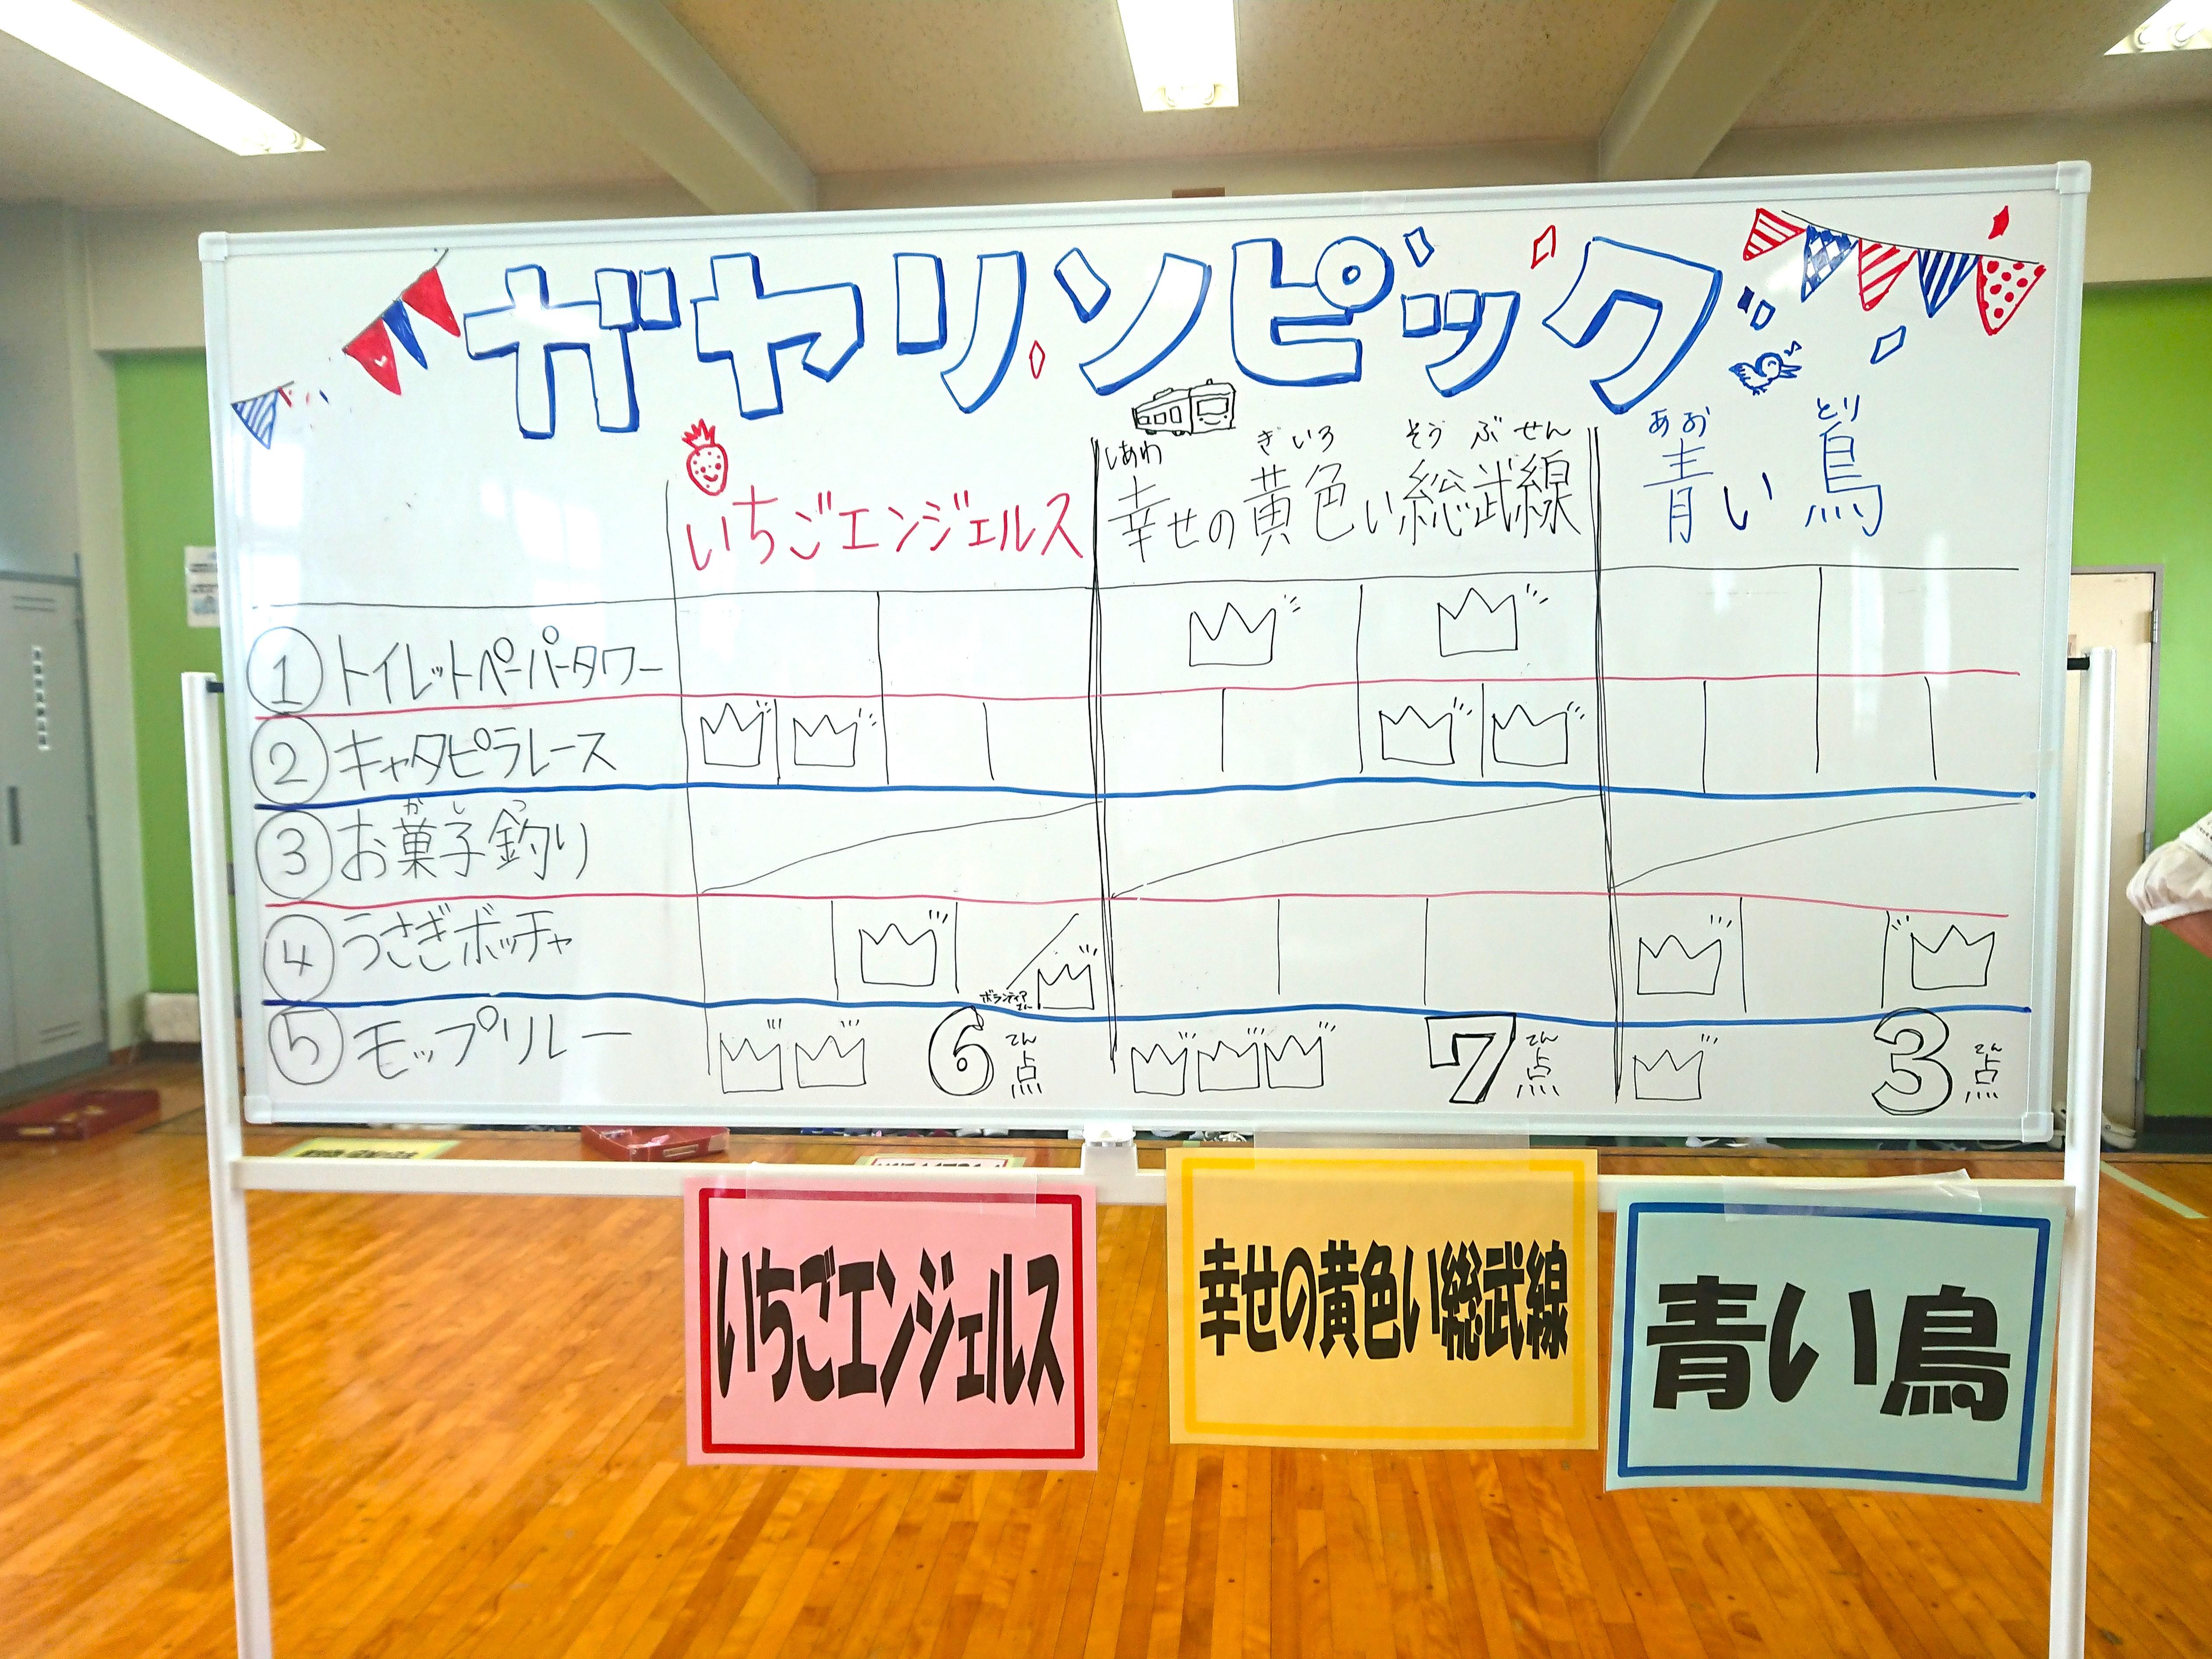 ガヤリンピック
いちごエンジェルス
しあわ きいろ そうぶせん
幸せの黄色い総武線
あお とり
青い鳥
① トイレットペーパータワー
② キャタピラレース
かし つ
③ お菓子釣り
④ うさぎボッチャ
ボランティア
⑤ モップリレー
6 てん 点
7 てん 点
3 てん 点
いちごエンジェルス
幸せの黄色い総武線
青い鳥